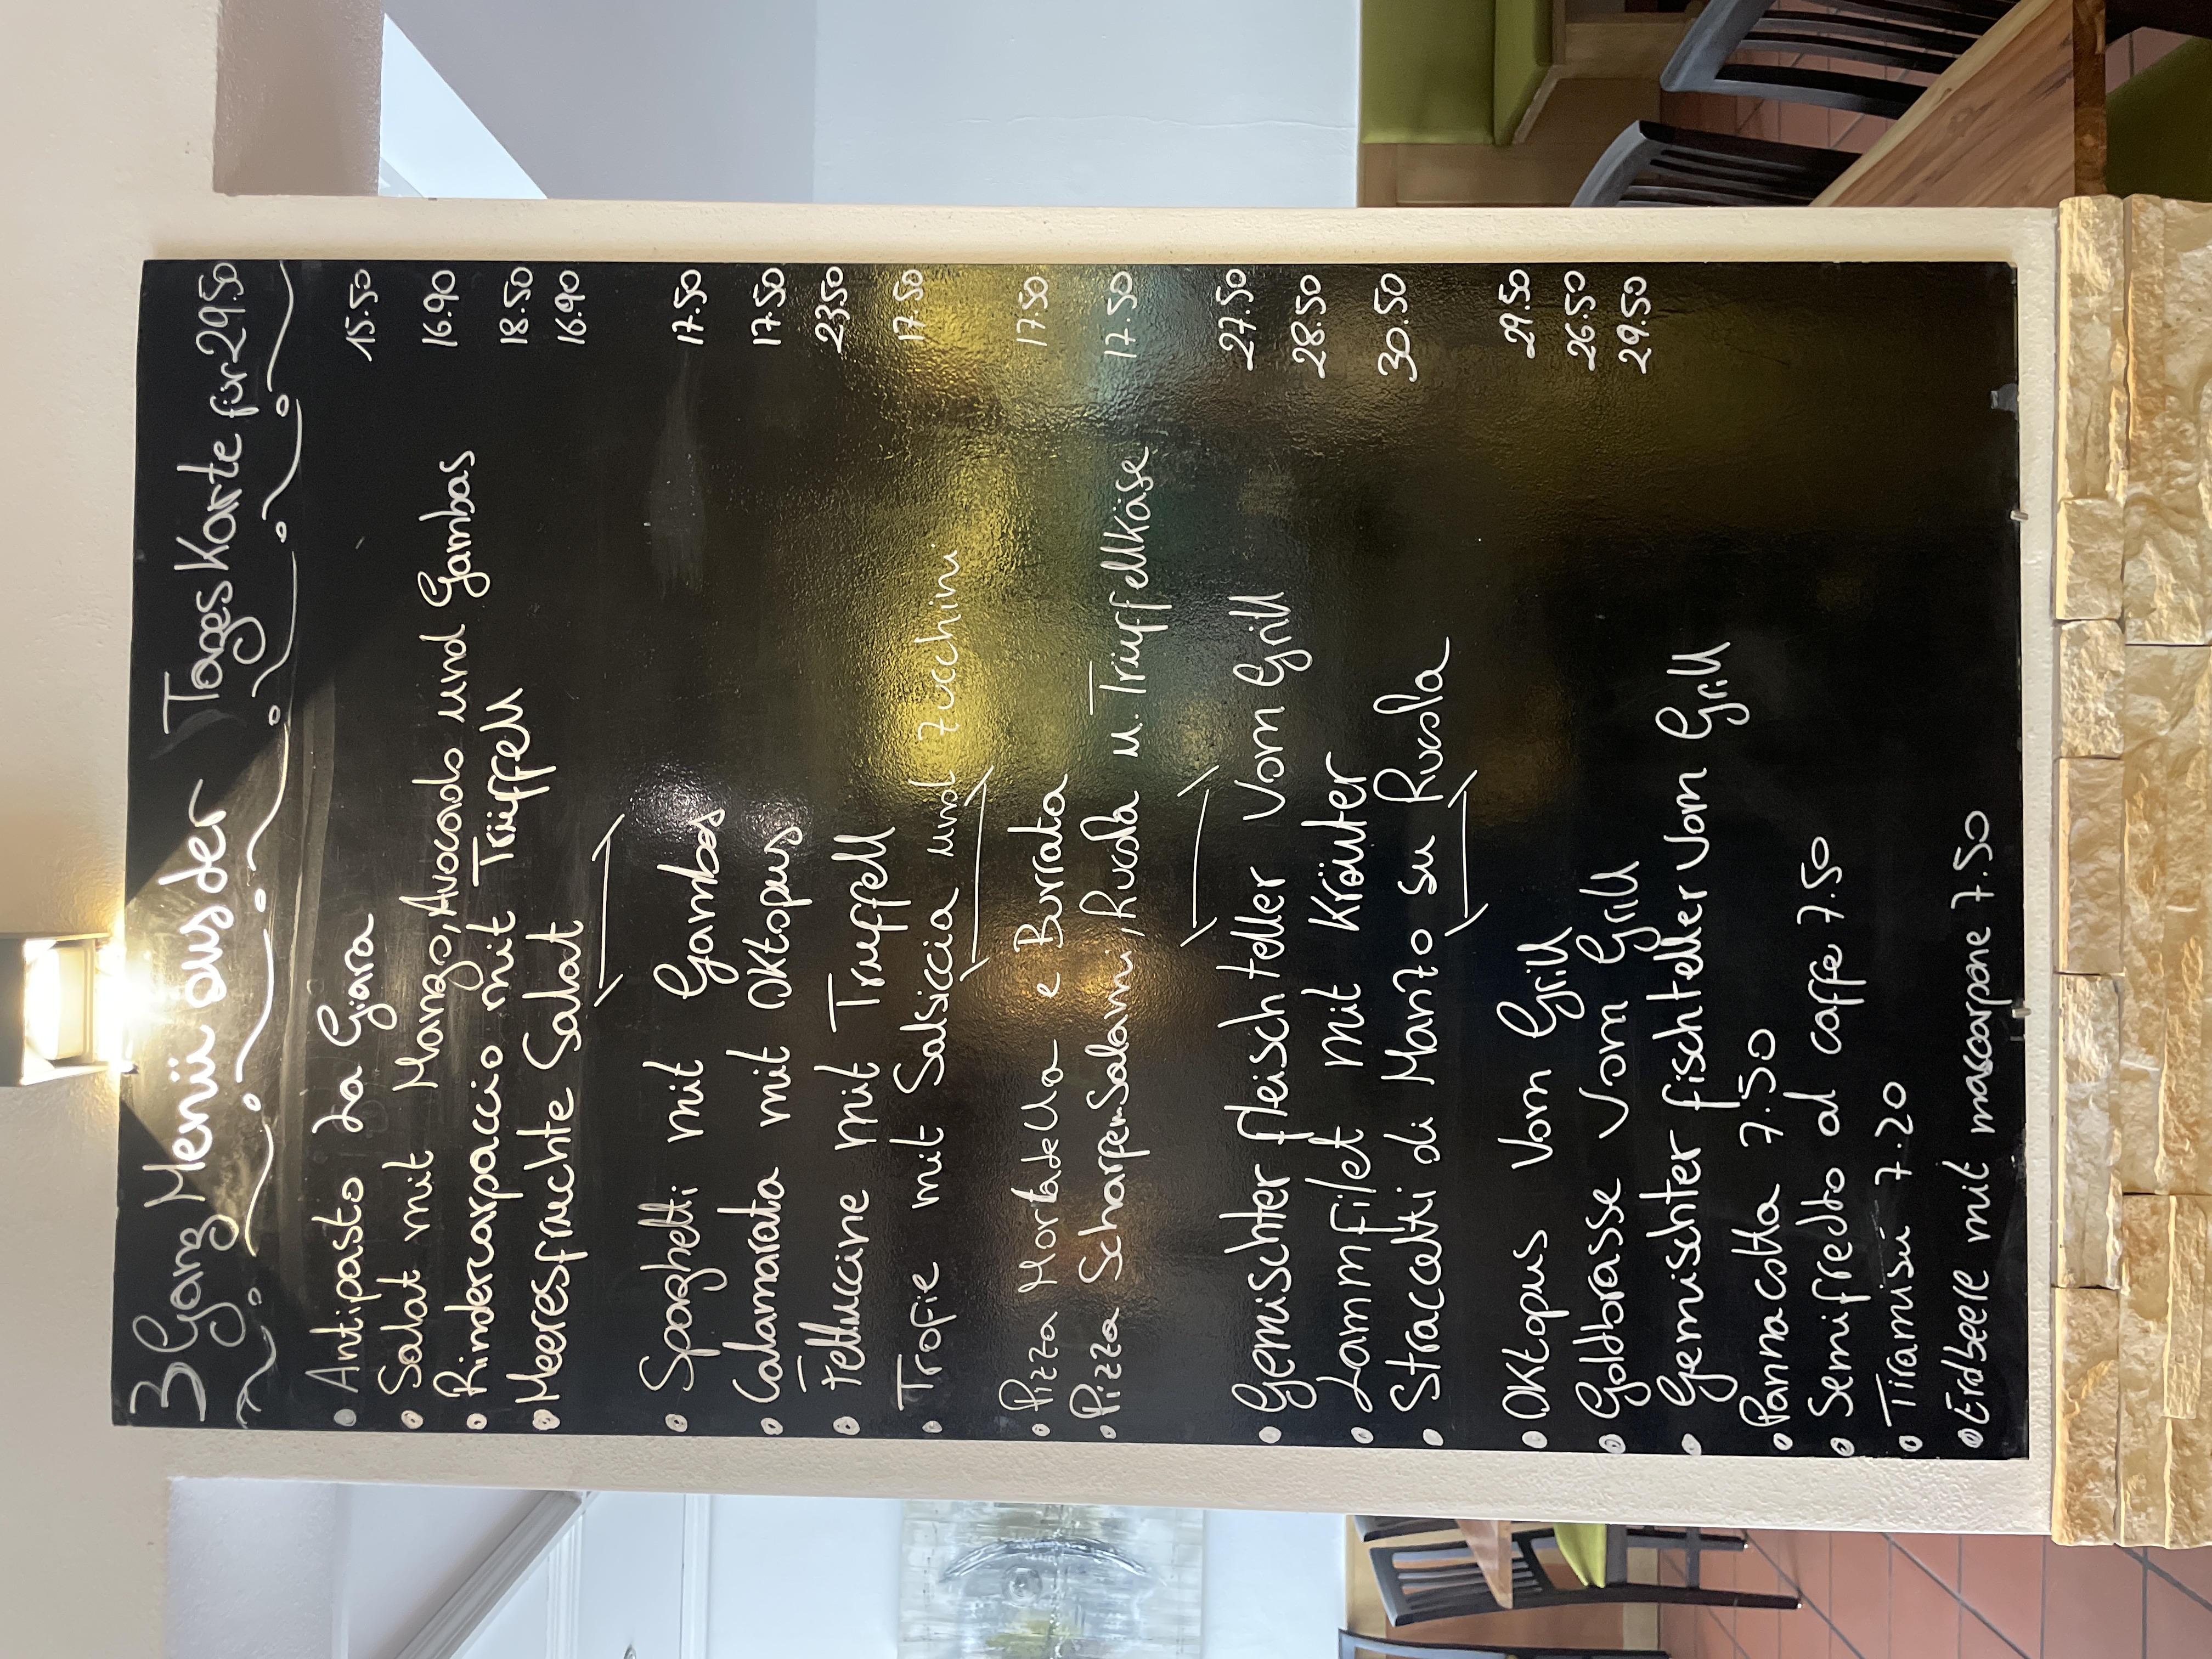 3 Gang Menü aus der Tageskarte für 29.50
• Antipasto La Giara 15.50
• Salat mit Mango, Avocado und Gambas 16.90
• Rindercarpaccio mit Trüffell 18.50
• Meeresfruchte Salat 16.90
• Spaghetti mit Gambas 17.50
• Calamarata mit Oktopus 17.50
• Fettuccine mit Truffell 23.50
• Trofie mit Salsiccia und Zucchini 17.50
• Pizza Mortadella e Burrata 17.50
• Pizza Scharpen Salami, Rucola u. Trüffellkäse 17.50
• Gemischter fleischteller Vom Grill 27.50
• Lammfilet mit Kräuter 28.50
• Straccetti di Manzo su Rucola 30.50
• Oktopus Vom Grill 29.50
• Goldbrasse Vom Grill 26.50
• Gemischter fischteller Vom Grill 29.50
• Pannacotta 7.50
• Semifredto al caffe 7.50
• Tiramisu 7.20
• Erdbeere mit mascarpone 7.50